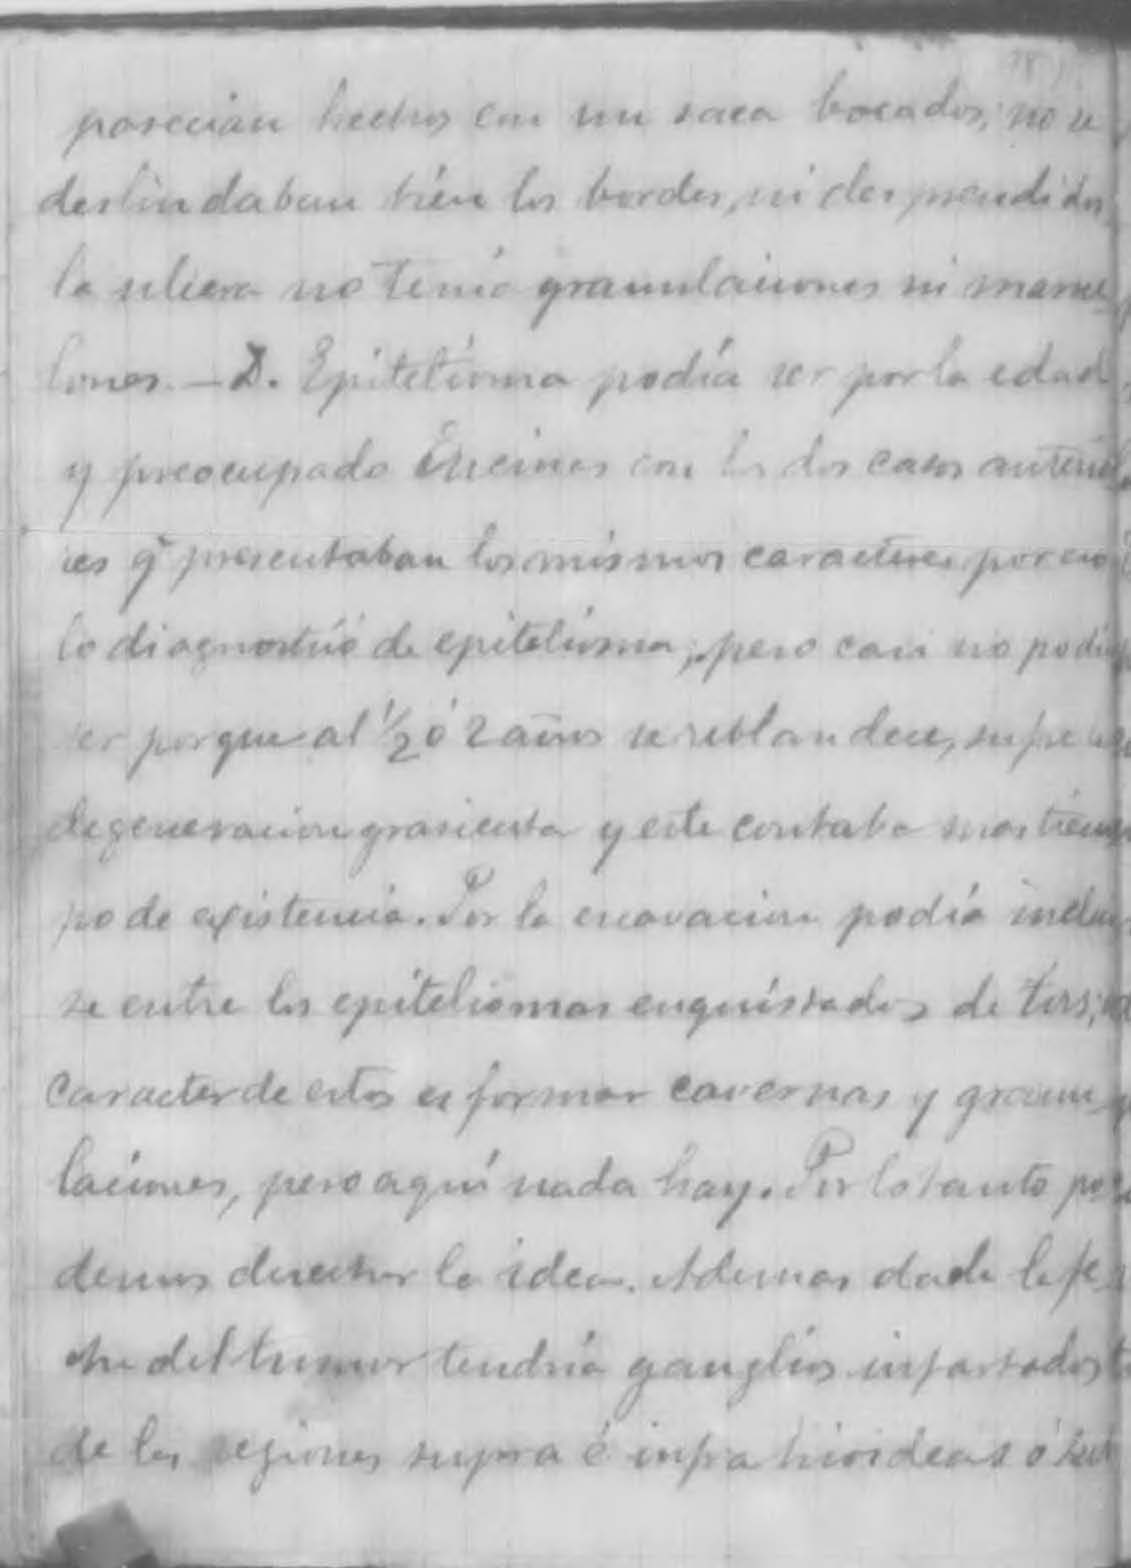 parecian hechos con un saca bocados; no se
deslindaban bién los bordes, ni desprendidos,
la ulcera no tenía granulaciones ni mame
lones. — D. Epitelioma podía ser por la edad
y preocupado Encinas con los dos casos anterio
res q. presentaban los mismos caracteres por eso
lo diagnosticó de epitelioma; pero casi no podía
ser porque al ½ ó 2 años se reblandece, sufre
degeneracion grasienta y este contaba mas tiem
po de existencia. Por la excavacion podía incluir
se entre los epiteliomas enquistados de
caracter de estos es formar cavernas y granu
laciones, pero aquí nada hay. Por lo tanto po
demos desechar la idea. Ademas dada la fe
cha del tumor tendría ganglios infartados
de las regiones supra é infra hioideas ó